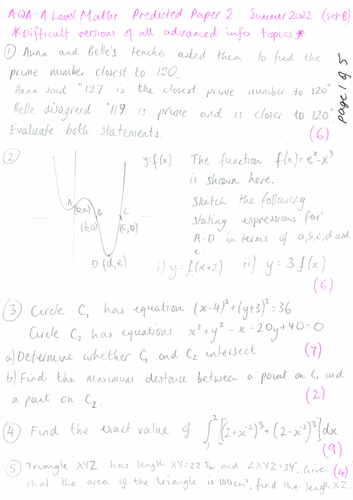 AQA - A Level Maths Predicted Paper 2 Summer 2022 (Set B)
*Difficult versions of all advanced info topics*
page 1 of 5
① Anna and Belle's teacher asked them to find the
prime number closest to 120.
Anna said "127 is the closest prime number to 120"
Belle disagreed "119 is prime and is closer to 120"
Evaluate both statements.
(6)
②
y=f(x)
The function f(x) = eˣ - x³
is shown here.
Sketch the following
stating expressions for
A-D in terms of a,b,c,d and
e.
A
(0,a)
B
(b,0)
C
(c,0)
D (d,e)
i) y=f(x+2) ii) y = 3f(x)
(6)
③ Circle C₁ has equation (x-4)²+(y+3)²=36
Circle C₂ has equations x²+y²-x-20y+40=0
a) Determine whether C₁ and C₂ intersect. (7)
b) Find the maximum distance between a point on C₁ and
a point on C₂. (2)
④ Find the exact value of ∫₁² [(2+x⁻²)³ + (2-x⁻²)³] dx
(9)
⑤ Triangle XYZ has length XY=22.5cm and ∠XYZ=34°. Given (4)
that the area of the triangle is 100cm², find the length XZ.